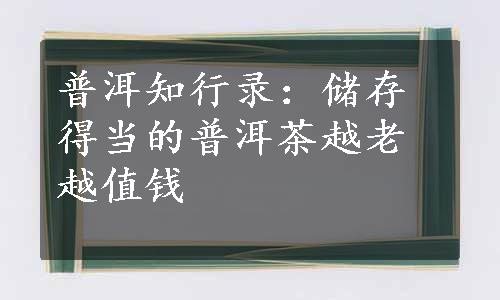 普洱知行录：储存
得当的普洱茶越老
越值钱